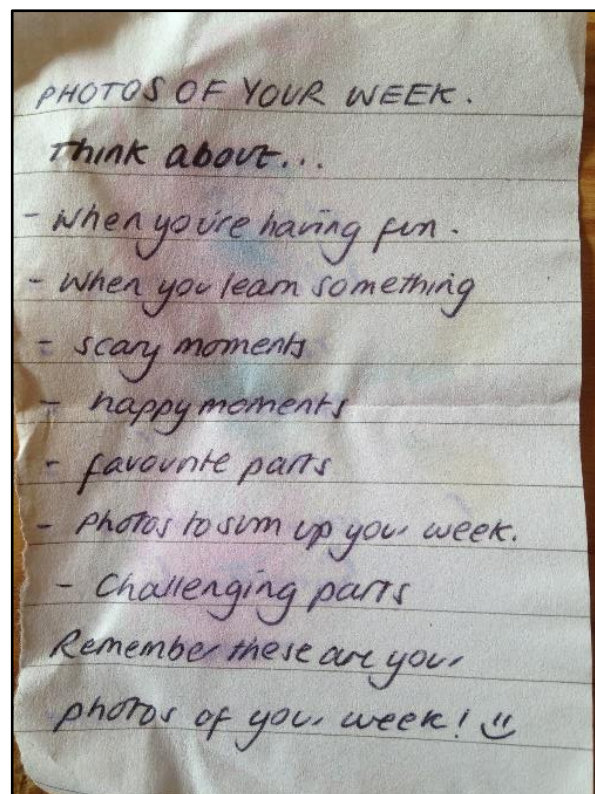 PHOTOS OF YOUR WEEK.
Think about...
- When you're having fun.
- when you learn something
- scary moments
- happy moments
- favourite parts
- photos to sum up your week.
- Challenging parts
Remember these are your
photos of your week! :)